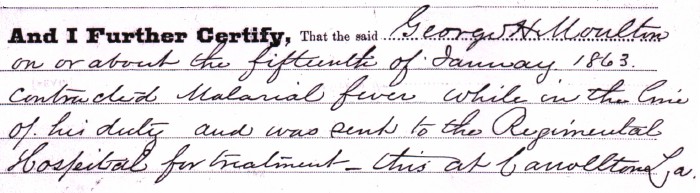 And I Further Certify, That the said George H Moulton
on or about the fifteenth of January 1863.
contracted Malarial fever while in the line
of his duty and was sent to the Regimental
Hospital for treatment - this at Carrollton La.